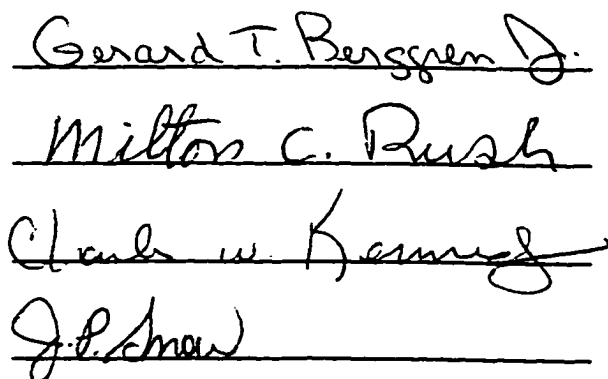 Gerard T. Berggren Jr.
Milton C. Rush
Charles W. Kennedy
J.P. Snow